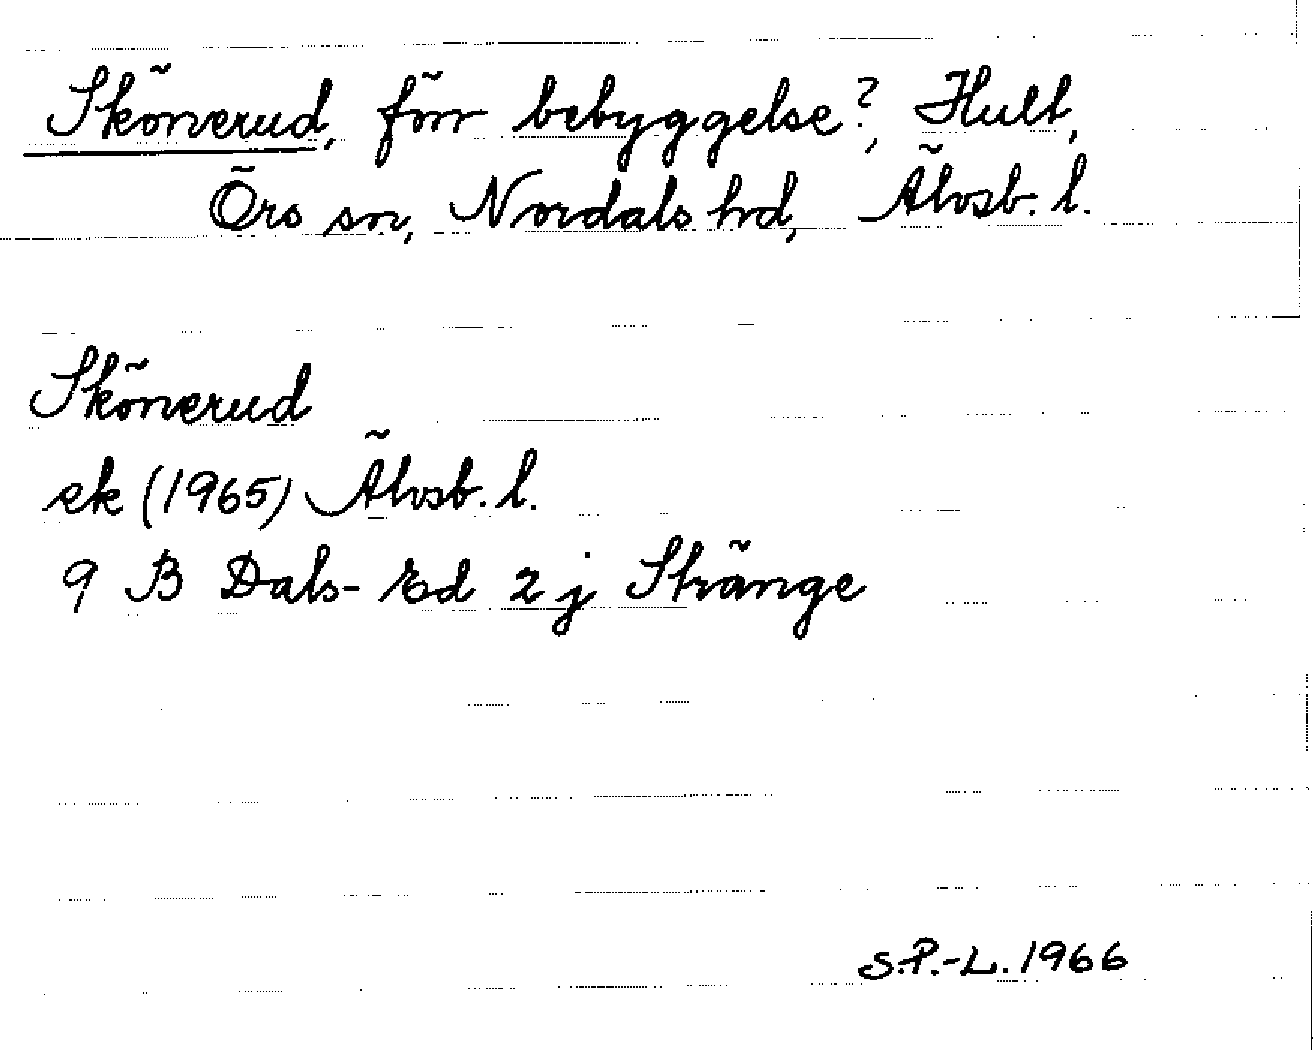 Skönerud, förr bebyggelse?, Hult,
Örs sn, Nordals hd, Älvsb. l.
Skönerud
ek (1965) Älvsb. l.
9 B Dals-Ed 2 j Stränge
S.P.-L. 1966